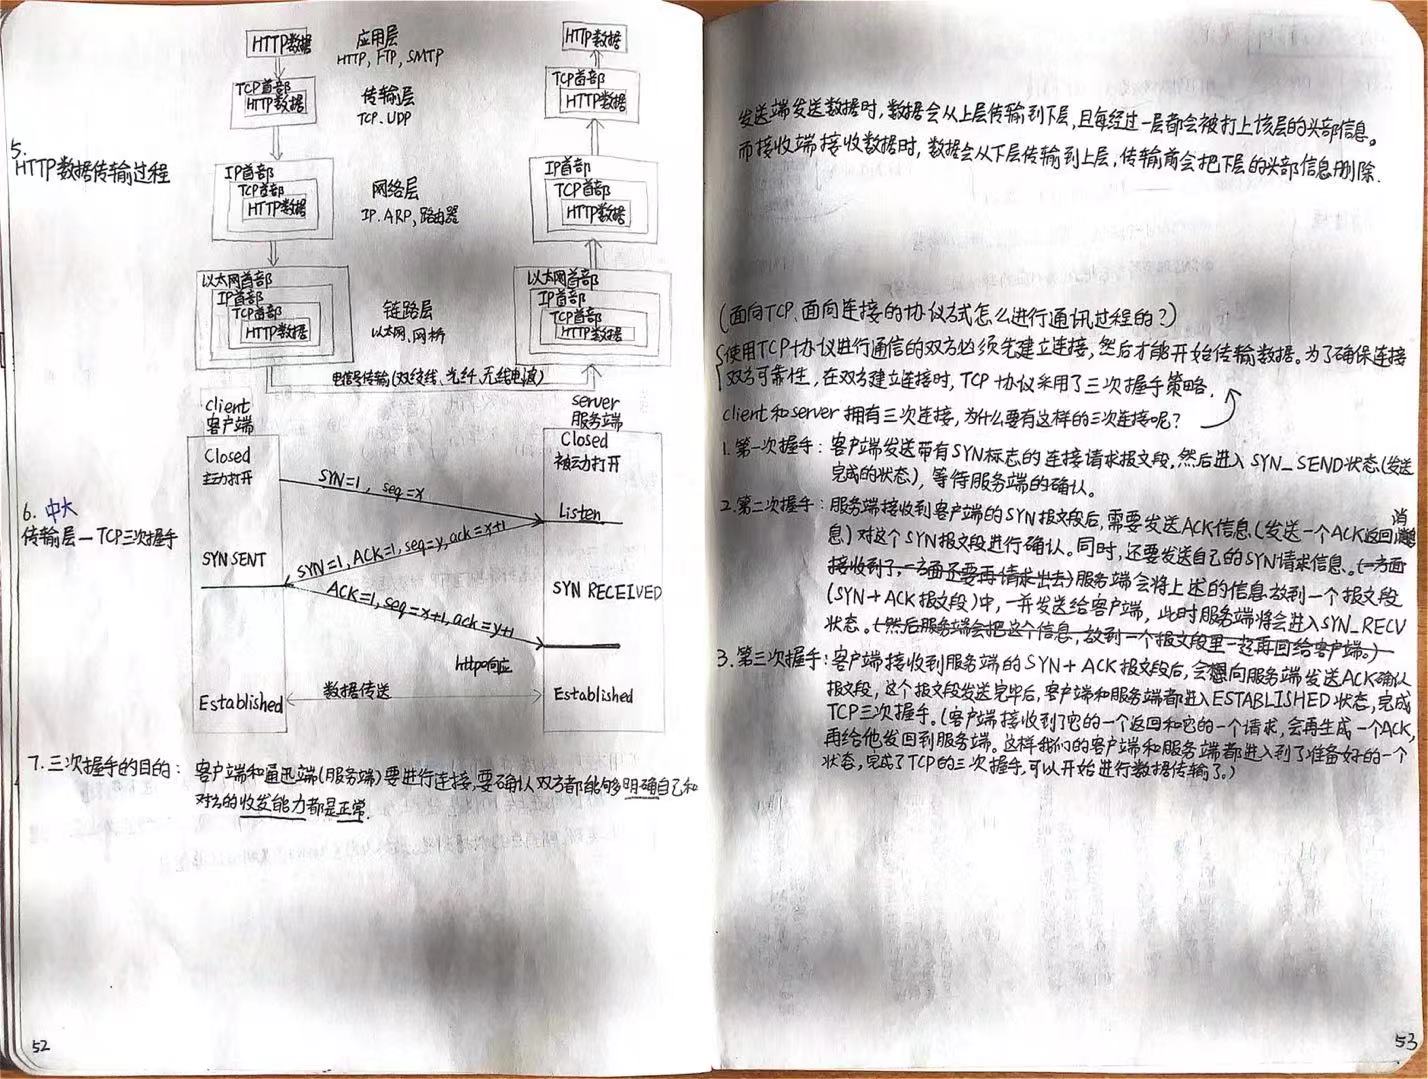 HTTP数据
应用层
HTTP, FTP, SMTP
HTTP数据
TCP首部
HTTP数据
传输层
TCP.UDP
TCP首部
HTTP数据
5.
HTTP数据传输过程
IP首部
TCP首部
HTTP数据
网络层
IP.ARP,路由器
IP首部
TCP首部
HTTP数据
以太网首部
IP首部
TCP首部
HTTP数据
链路层
以太网、网桥
以太网首部
IP首部
TCP首部
HTTP数据
电信号传输(双绞线、光纤、无线电波)
client
客户端
server
服务端
Closed
主动打开
Closed
被动打开
SYN=1, seq=x
Listen
6. 中大
传输层—TCP三次握手
SYN SENT
SYN=1, ACK=1, seq=y, ack=x+1
ACK=1, seq=x+1, ack=y+1
SYN RECEIVED
http响应
Established
数据传送
Established
7.三次握手的目的: 客户端和通迅端(服务端)要进行连接,要确认双方都能够明确自己和
对方的收发能力都是正常.
52
发送端发送数据时,数据会从上层传输到下层,且每经过一层都会被打上该层的头部信息。
而接收端接收数据时,数据会从下层传输到上层,传输前会把下层的头部信息删除.
(面向TCP、面向连接的协议方式怎么进行通讯过程的?)
使用TCP协议进行通信的双方必须先建立连接,然后才能开始传输数据。为了确保连接
双方可靠性,在双方建立连接时,TCP协议采用了三次握手策略.
client和server拥有三次连接,为什么要有这样的三次连接呢?
1.第一次握手:客户端发送带有SYN标志的连接请求报文段,然后进入SYN_SEND状态(发送
完成的状态),等待服务端的确认。
2.第二次握手:服务端接收到客户端的SYN报文段后,需要发送ACK信息(发送一个ACK返回消
息)对这个SYN报文段进行确认。同时,还要发送自己的SYN请求信息。(一方面
接收到了,一方面还要再请求出去)服务端会将上述的信息放到一个报文段
(SYN+ACK报文段)中,一并发送给客户端,此时服务端将会进入SYN_RECV
状态。(然后服务端会把这个信息,放到一个报文段里一起再回给客户端。)
3.第三次握手:客户端接收到服务端的SYN+ACK报文段后,会想向服务端发送ACK确认
报文段,这个报文段发送完毕后,客户端和服务端都进入ESTABLISHED状态,完成
TCP三次握手。(客户端接收到了它的一个返回和它的一个请求,会再生成一个ACK,
再给他发回到服务端。这样我们的客户端和服务端都进入到了准备好的一个
状态,完成了TCP的三次握手,可以开始进行数据传输了。)
53